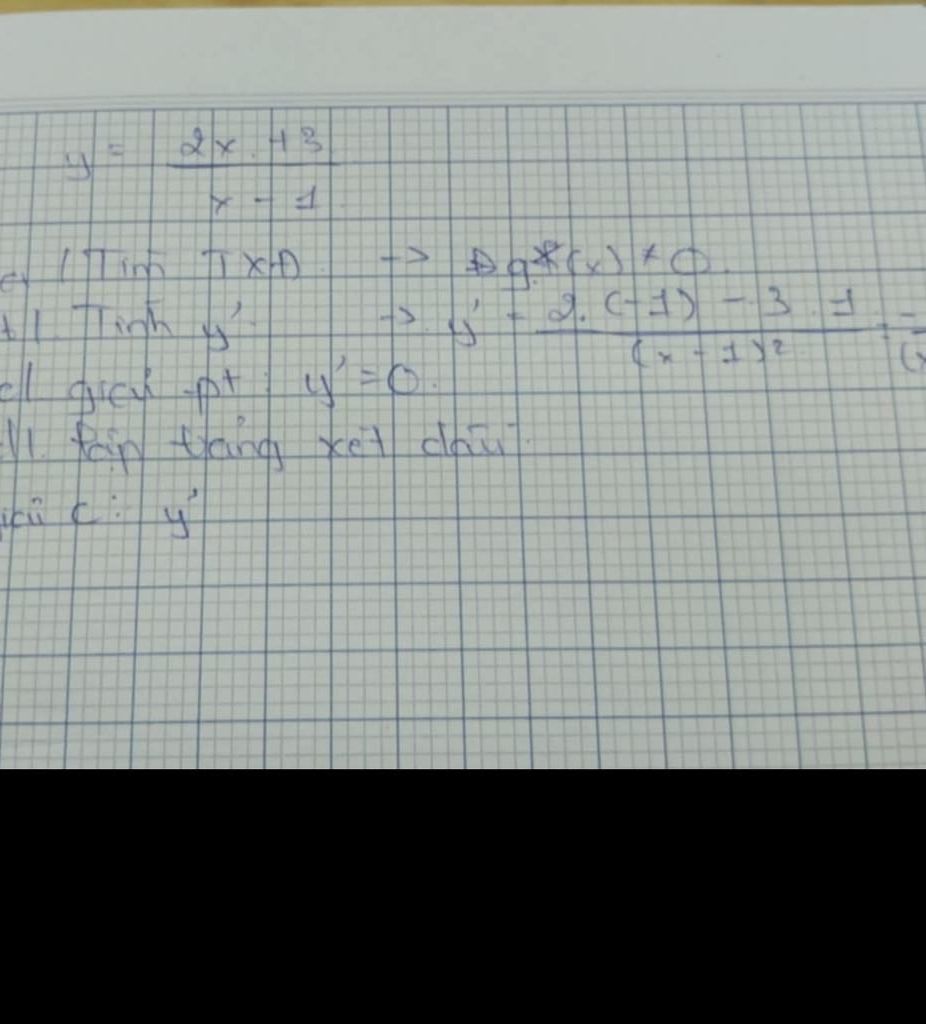 y = (2x + 3) / (x - 1)
a/ Tìm TXĐ -> g(x) ≠ 0
b/ Tính y' -> y' = (2.(-1) - 3.1) / (x - 1)² = -
c/ giải pt: y' = 0.
d/ lập bảng xét dấu
giải c: y'